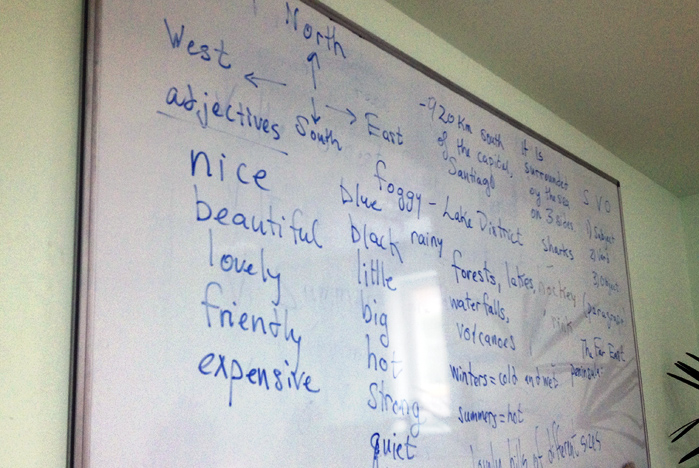 North
West
South
East
adjectives
nice
beautiful
lovely
friendly
expensive
foggy
blue
black
rainy
little
big
hot
strong
quiet
-920 km south
of the capital,
Santiago
it is
surrounded
by the sea
on 3 sides.
- Lake District
sharks
forests, lakes,
waterfalls,
volcanoes
winters = cold and wet
summers = hot
lovely hills of different sizes
S V O
1) Subject
2) Verb
3) Object
The Far East
peninsula